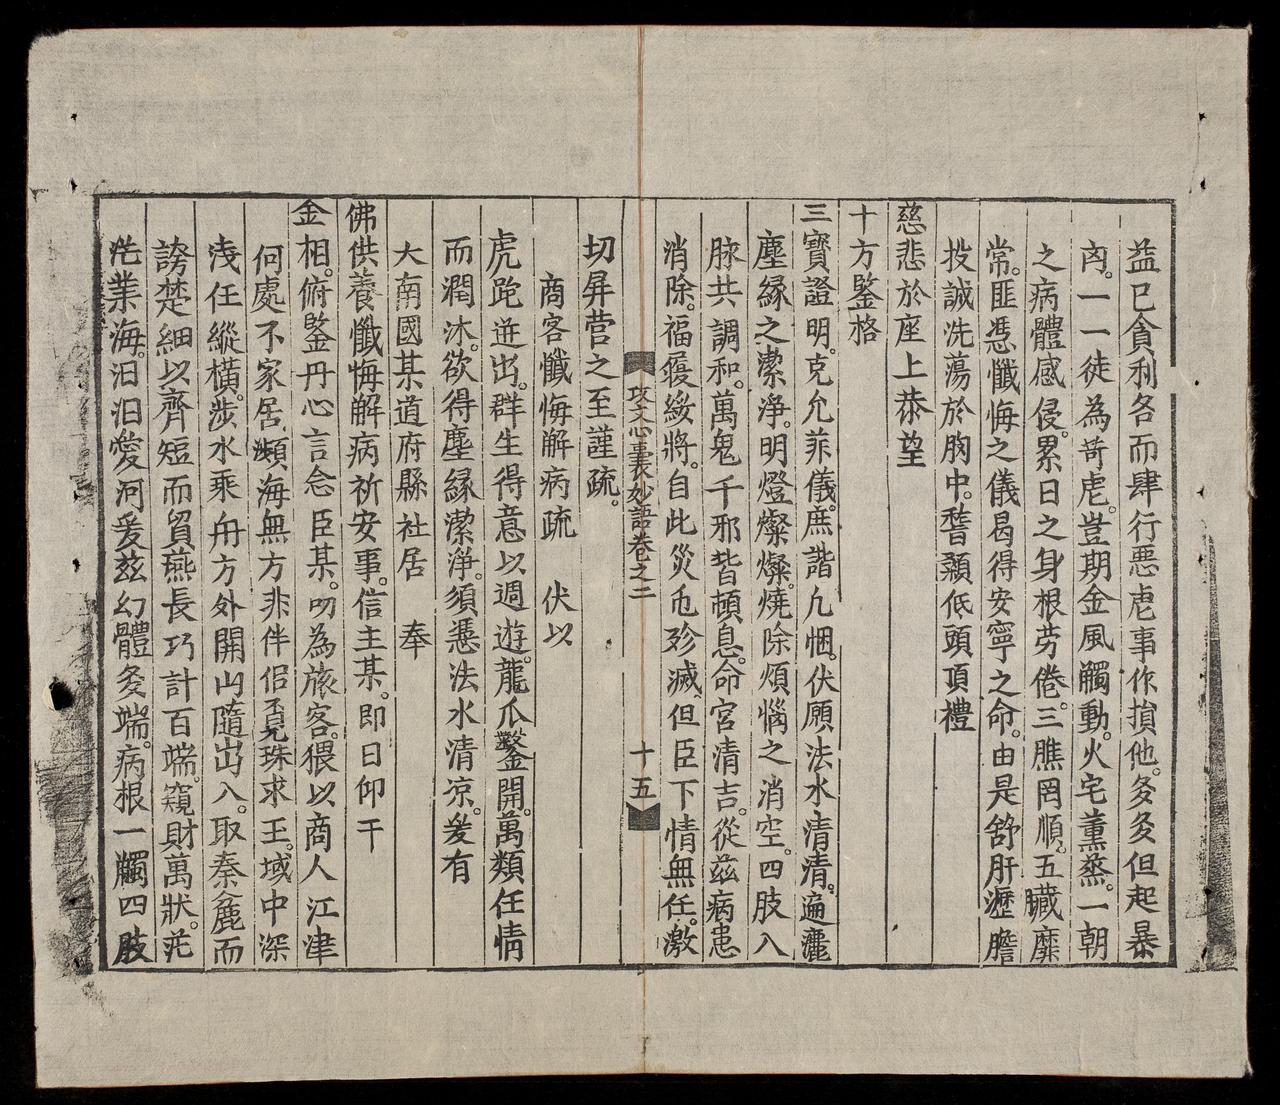 益已貪利各而肆行惡虐事作損他。夋夋但起暴
㐫。一一徒為苛虐。豈期金風觸動。火宅薰蒸。一朝
之病體感侵。累日之身根劳倦。三膲罔順。五臟靡
常。匪憑懺悔之儀曷得安寧之命。由是舒肝瀝膽
投誠洗蕩於胸中。稽顙低頭頂禮
慈悲於座上恭望
十方鑒格
三寶證明。克允菲儀。庶諧凢悃。伏願法水清清。遍灑
塵縁之潔淨。明燈燦燦。燒除煩惱之消空。四肢八
脉共調和。萬鬼千邪皆頓息。命宮清吉。從茲病患
消除。福履綏將。自此災危殄滅但臣下情無任。激
攻文心囊妙語卷之二 十五
切屏营之至謹疏。
商客懺悔解病疏 伏以
虎跎迸出。群生得意以週遊。龍爪鑿開。萬類任情
而潤沐。欲得塵縁潔淨。須憑法水清凉。爰有
大南國某道府縣社居 奉
佛供養懺悔解病祈安事。信主某。即日仰干
金相。俯鍳丹心言念臣某。叨為旅客。猥以商人江津
何處不家居瀕海無方非伴侶覓珠求玉。域中深
淺任縱横。渉水乘舟方外開山隨出入。取秦麄而
謗楚細以齊短而貿燕長巧計百端。窺財萬狀。茫
茫業海。汩汩愛河爰茲幻體夋端。病根一觸四肢